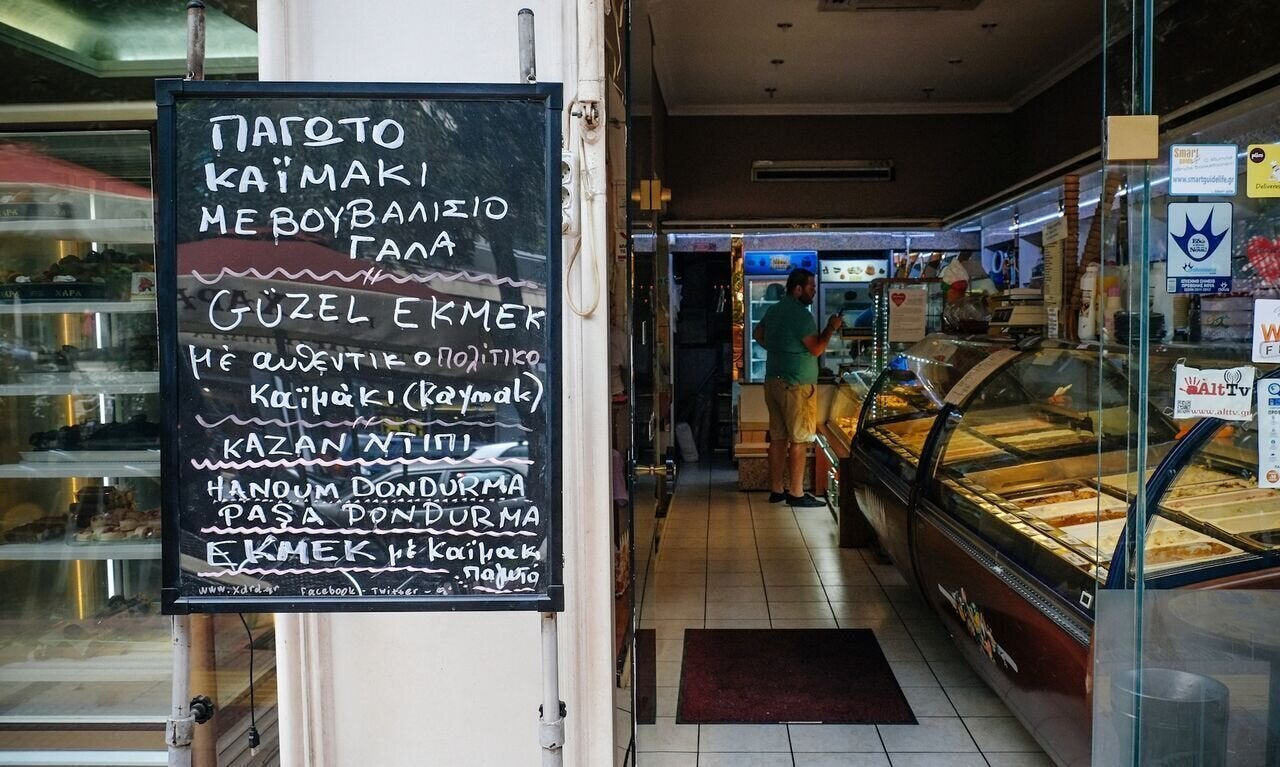 ΠΑΓΩΤΟ
ΚΑΪΜΑΚΙ
ΜΕ ΒΟΥΒΑΛΙΣΙΟ
ΓΑΛΑ
GÜZEL EKMEK
μὲ αυθεντικο πολίτικο
καϊμάκι (kaymak)
ΚΑΖΑΝ ΝΤΙΠΙ
HANOUM DONDURMA
PAŞA DONDURMA
EKMEK μὲ καϊμάκι
παγωτό
www.xara.gr Facebook - Twitter -
ΧΑΡΑ
Smart
www.smartguidelife.gr
Εδώ
AltTv
www.alttv.gr